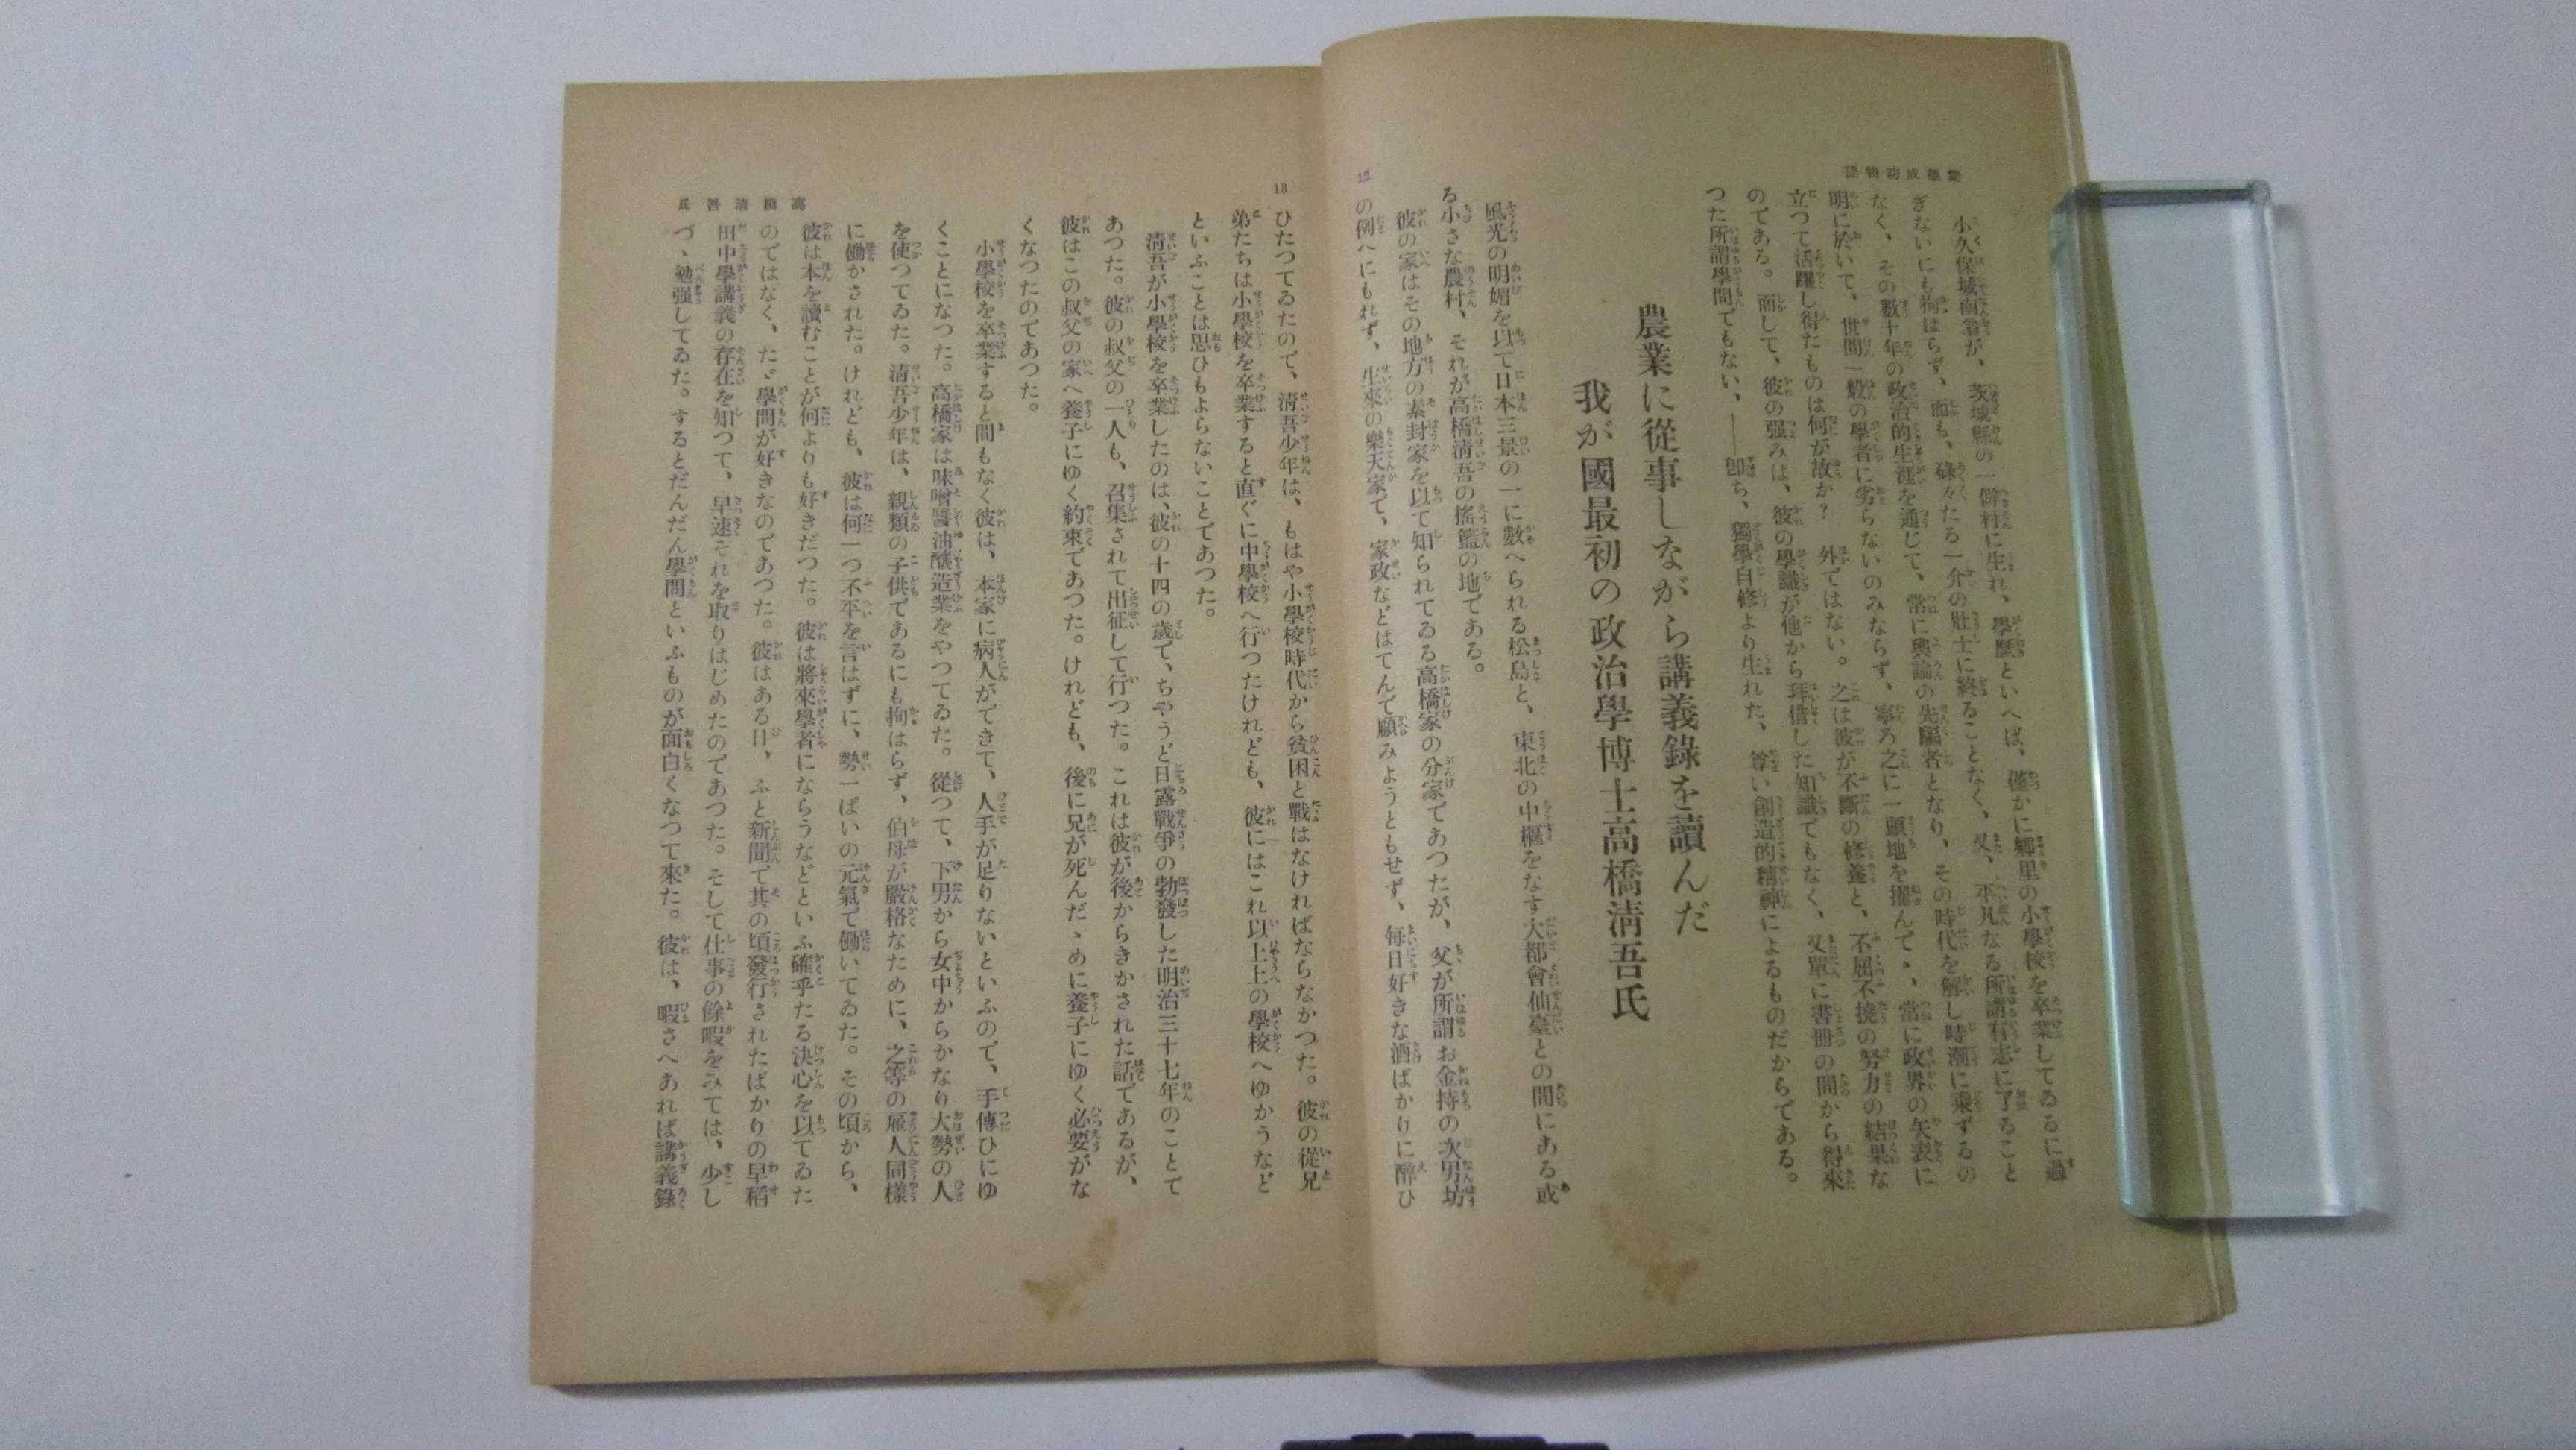 苦學成功物語
小久保城南翁が、茨城縣の一僻村に生れ、學歷といへば、僅かに鄕里の小學校を卒業してゐるに過
ぎないにも拘はらず、而も、碌々たる一介の壯士に終ることなく、又、平凡なる所謂有志に了ること
なく、その數十年の政治的生涯を通じて、常に輿論の先驅者となり、その時代を解し時潮に乘ずるの
明に於いて、世間一般の學者に劣らないのみならず、寧ろ之に一頭地を擢んでゝ、常に政界の矢表に
立つて活躍し得たものは何が故か？　外ではない。之は彼が不斷の修養と、不屈不撓の努力の結果な
のである。而して、彼の强みは、彼の學識が他から拜借した知識でもなく、又單に書册の間から得來
つた所謂學問でもない、――卽ち、獨學自修より生れた、尊い創造的精神によるものだからである。
農業に從事しながら講義錄を讀んだ
我が國最初の政治學博士高橋淸吾氏
風光の明媚を以て日本三景の一に數へられる松島と、東北の中樞をなす大都會仙臺との間にある或
る小さな農村、それが高橋淸吾の搖籃の地である。
彼の家はその地方の素封家を以て知られてゐる高橋家の分家であつたが、父が所謂お金持の次男坊
の例へにもれず、生來の樂天家で、家政などはてんで顧みようともせず、每日好きな酒ばかりに醉ひ
12
13
ひたつてゐたので、淸吾少年は、もはや小學校時代から貧困と戰はなければならなかつた。彼の從兄
弟たちは小學校を卒業すると直ぐに中學校へ行つたけれども、彼にはこれ以上上の學校へゆかうなど
といふことは思ひもよらないことであつた。
淸吾が小學校を卒業したのは、彼の十四の歲で、ちやうど日露戰爭の勃發した明治三十七年のことで
あつた。彼の叔父の一人も、召集されて出征して行つた。これは彼が後からきかされた話であるが、
彼はこの叔父の家へ養子にゆく約束であつた。けれども、後に兄が死んだゝめに養子にゆく必要がな
くなつたのであつた。
小學校を卒業すると間もなく彼は、本家に病人ができて、人手が足りないといふので、手傳ひにゆ
くことになつた。高橋家は味噌醬油釀造業をやつてゐた。從つて、下男から女中からかなり大勢の人
を使つてゐた。淸吾少年は、親類の子供であるにも拘はらず、伯母が嚴格なために、之等の雇人同樣
に働かされた。けれども、彼は何一つ不平を言はずに、勢一ぱいの元氣で働いてゐた。その頃から、
彼は本を讀むことが何よりも好きだつた。彼は將來學者にならうなどといふ確乎たる決心を以てゐた
のではなく、たゞ學問が好きなのであつた。彼はある日、ふと新聞で其の頃發行されたばかりの早稻
田中學講義の存在を知つて、早速それを取りはじめたのであつた。そして仕事の餘暇をみては、少し
づゝ勉强してゐた。するとだんだん學問といふものが面白くなつて來た。彼は、暇さへあれば講義錄
高橋淸吾氏